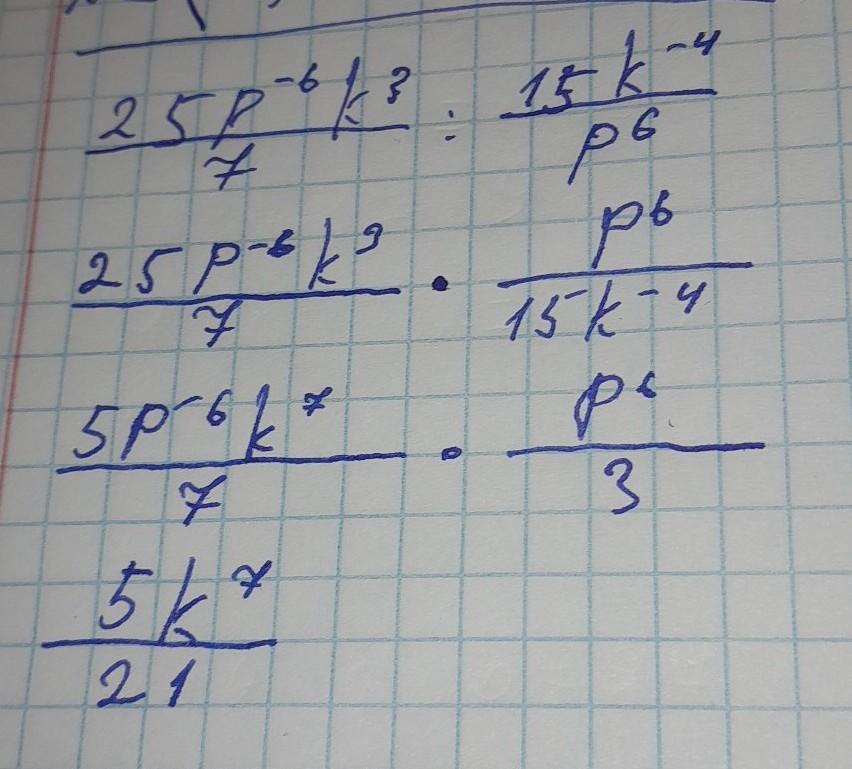 25p⁻⁶k³/7 : 15k⁻⁴/p⁶
25p⁻⁶k³/7 · p⁶/15k⁻⁴
5p⁻⁶k⁷/7 · p⁶/3
5k⁷/21